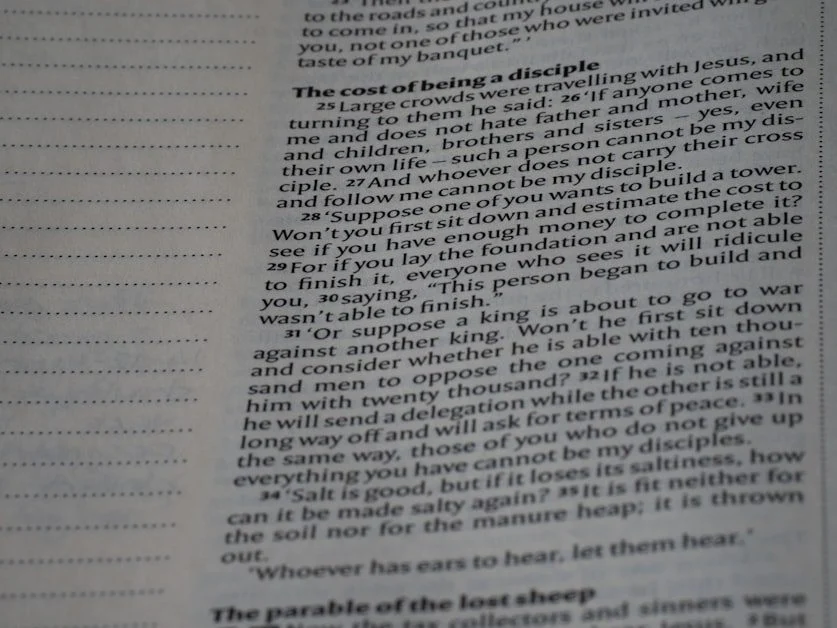 to the roads and
to come in, so that my house
you, not one of those who were invited will
taste of my banquet.” ’
The cost of being a disciple
25 Large crowds were travelling with Jesus, and
turning to them he said: 26 ‘If anyone comes to
me and does not hate father and mother, wife
and children, brothers and sisters – yes, even
their own life – such a person cannot be my dis-
ciple. 27 And whoever does not carry their cross
and follow me cannot be my disciple.
28 ‘Suppose one of you wants to build a tower.
Won’t you first sit down and estimate the cost to
see if you have enough money to complete it?
29 For if you lay the foundation and are not able
to finish it, everyone who sees it will ridicule
you, 30 saying, “This person began to build and
wasn’t able to finish.”
31 ‘Or suppose a king is about to go to war
against another king. Won’t he first sit down
and consider whether he is able with ten thou-
sand men to oppose the one coming against
him with twenty thousand? 32 If he is not able,
he will send a delegation while the other is still a
long way off and will ask for terms of peace. 33 In
the same way, those of you who do not give up
everything you have cannot be my disciples.
34 ‘Salt is good, but if it loses its saltiness, how
can it be made salty again? 35 It is fit neither for
the soil nor for the manure heap; it is thrown
out.
‘Whoever has ears to hear, let them hear.’
The parable of the lost sheep
the tax collectors and sinners were
Jesus. 2 But